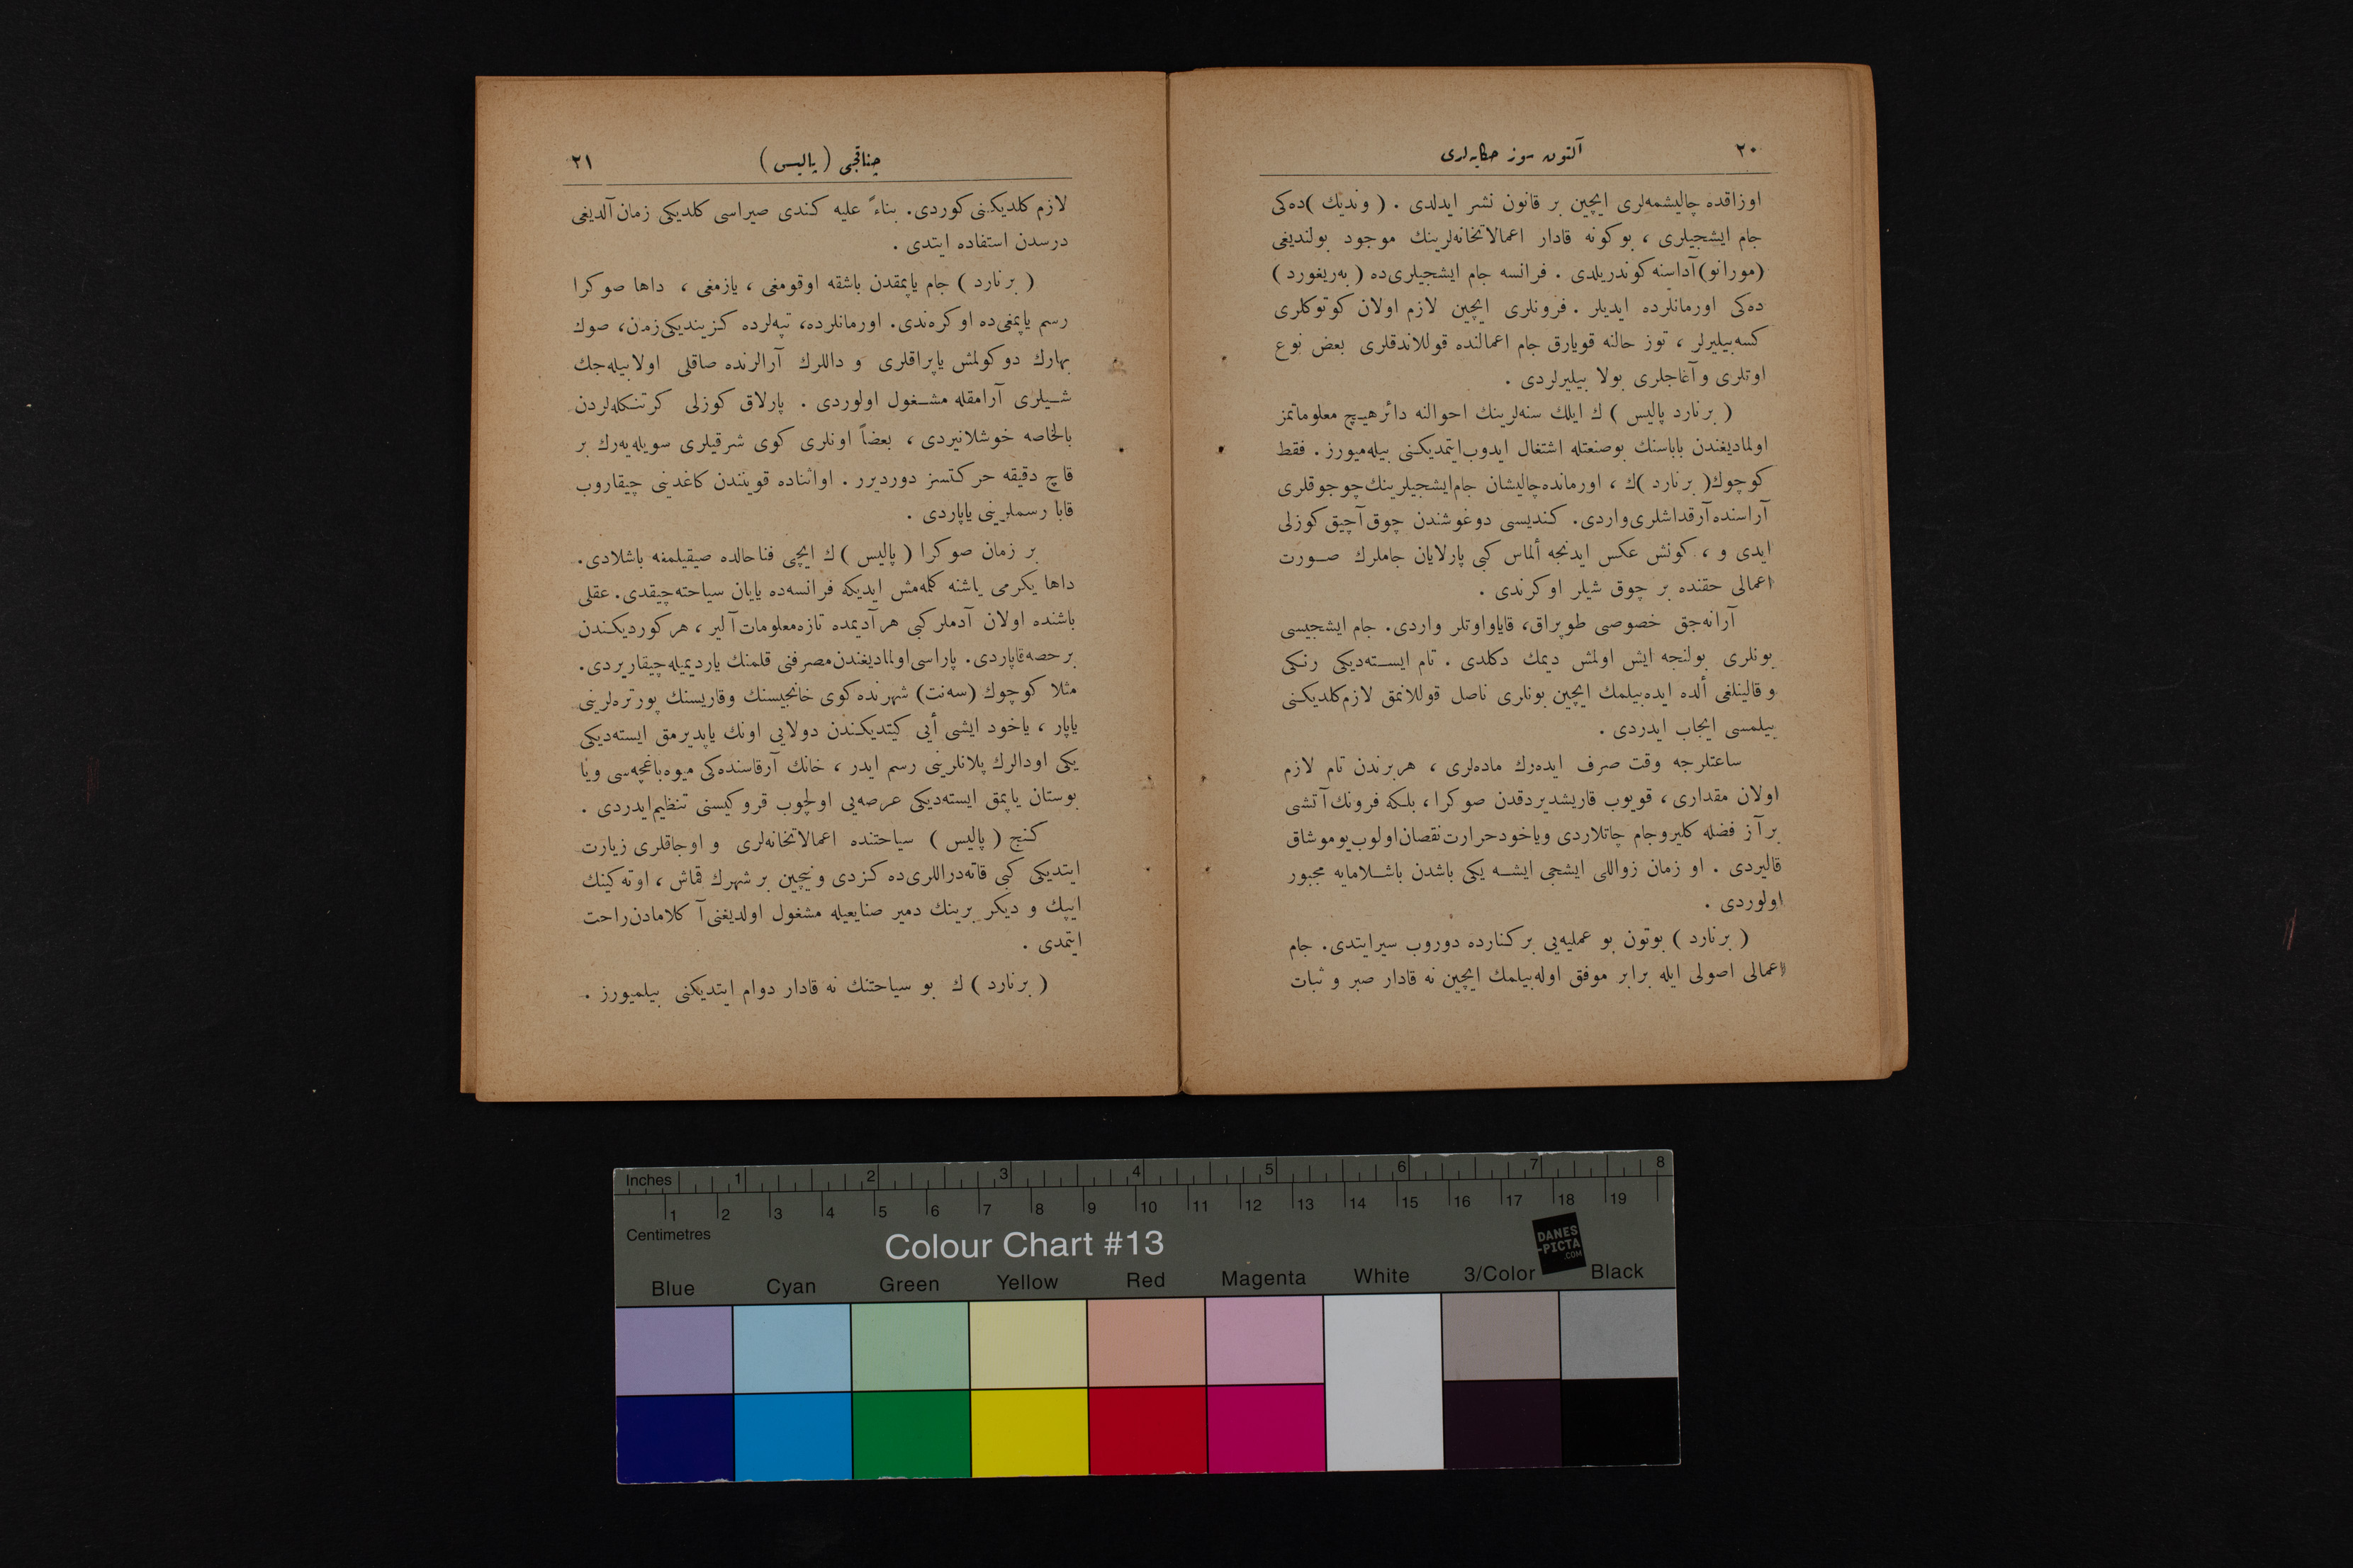 ٢٠
آلتون سوز حكايه‌لرى
اوزاقده چاليشمه‌لرى ايچين بر قانون نشر ايدلدى . ( ونديك ) ده‌كى
جام ايشجيلرى ، بوكونه قادار اعمالاتخانه‌لرينك موجود بولنديغى
(مورانو) آداسنه كوندريلدى . فرانسه جام ايشجيلرى‌ده ( به‌ريغورد )
ده‌كى اورمانلرده ايديلر . فرونلرى ايچين لازم اولان كوتوكلرى
كسه‌بيليرلر ، توز حالنه قويارق جام اعمالنده قوللاندقلرى بعض نوع
اوتلرى و آغاجلرى بولا بيليرلردى .
( برنارد پاليس ) ك ايلك سنه‌لرينك احوالنه دائر هيچ معلوماتمز
اولماديغندن باباسنك بوصنعتله اشتغال ايدوب ايتمديكنى بيله‌ميورز . فقط
كوچوك ( برنارد ) ك ، اورمانده چاليشان جام ايشجيلرينك چوجوقلرى
آراسنده آرقداشلرى واردى . كنديسى دوغوشندن چوق آچيق كوزلى
ايدى و ، كونش عكس ايدنجه ألماس كبى پارلايان جاملرك صورت
اعمالى حقنده بر چوق شيلر اوكرندى .
آرانه‌جق خصوصى طوپراق، قايا و اوتلر واردى. جام ايشجيسى
بونلرى بولنجه ايش اولمش ديمك دكلدى . تام ايسته‌ديكى رنكى
و قالينلغى ألده ايده‌بيلمك ايچين بونلرى ناصل قوللانمق لازم كلديكنى
بيلمسى ايجاب ايدردى .
ساعتلرجه وقت صرف ايده‌رك ماده‌لرى ، هربرندن تام لازم
اولان مقدارى ، قويوب قاريشديردقدن صوكرا ، بلكه فرونك آتشى
بر آز فضله كليرو جام چاتلاردى وياخود حرارت نقصان اولوب يوموشاق
قاليردى . او زمان زواللى ايشجى ايشه يكى باشدن باشلامايه مجبور
اولوردى .
( برنارد ) بوتون بو عمليه‌يى بر كنارده دوروب سيرايتدى. جام
اعمالى اصولى ايله برابر موفق اوله‌بيلمك ايچين نه قادار صبر و ثبات
چناقجى ( پاليس )
٢١
لازم كلديكنى كوردى. بناءً عليه كندى صيراسى كلديكى زمان آلديغى
درسدن استفاده ايتدى .
( برنارد ) جام ياپمقدن باشقه اوقومغى ، يازمغى ، داها صوكرا
رسم ياپمغى‌ده اوكره‌ندى. اورمانلرده، تپه‌لرده كزينديكى زمن، صوك
بهارك دوكولمش ياپراقلرى و داللرك آرالرنده صاقلى اولابيله‌جك
شيلرى آرامقله مشغول اولوردى . پارلاق كوزلى كرتنكله‌لردن
بالخاصه خوشلانيردى ، بعضاً اونلرى كوى شرقيلرى سويله‌يه‌رك بر
قاچ دقيقه حركتسز دورديرر . اواثناده قويتندن كاغدينى چيقاروب
قابا رسملرينى ياپاردى .
بر زمان صوكرا ( پاليس ) ك ايچى فناحالده صيقيلمغه باشلادى.
داها يكرمى ياشنه كلمه‌مش ايديكه فرانسه‌ده يايان سياحته چيقدى. عقلى
باشنده اولان آدملر كبى هر آديمده تازه معلومات آلير ، هر كورديكندن
بر حصه قاپاردى. پاراسى اولماديغندن مصرفنى قلمنك يارديميله چيقاريردى.
مثلا كوچوك (سه‌نت) شهرنده كوى خانجيسنك و قاريسنك پورتره‌لرينى
ياپار ، ياخود ايشى أيى كيتديكندن دولايى اونك ياپديرمق ايسته‌ديكى
يكى اودالرك پلانلرينى رسم ايدر ، خانك آرقاسنده‌كى ميوه باغچه‌سى ويا
بوستان ياپمق ايسته‌ديكى عرصه‌يى اولچوب قروكيسنى تنظيم ايدردى .
كنج ( پاليس ) سياحتنده اعمالاتخانه‌لرى و اوجاقلرى زيارت
ايتديكى كبى قاته‌دراللرى‌ده كزدى و نيچين بر شهرك قماش ، اوته‌كينك
ايپك و ديكر برينك دمير صنايعيله مشغول اولديغنى آكلامادن راحت
ايتمدى .
( برنارد ) ك بو سياحتنك نه قادار دوام ايتديكنى بيلميورز .
Inches 1 2 3 4 5 6 7 8
1 2 3 4 5 6 7 8 9 10 11 12 13 14 15 16 17 18 19
Centimetres
Colour Chart #13
DANES
-PICTA
.COM
Blue Cyan Green Yellow Red Magenta White 3/Color Black